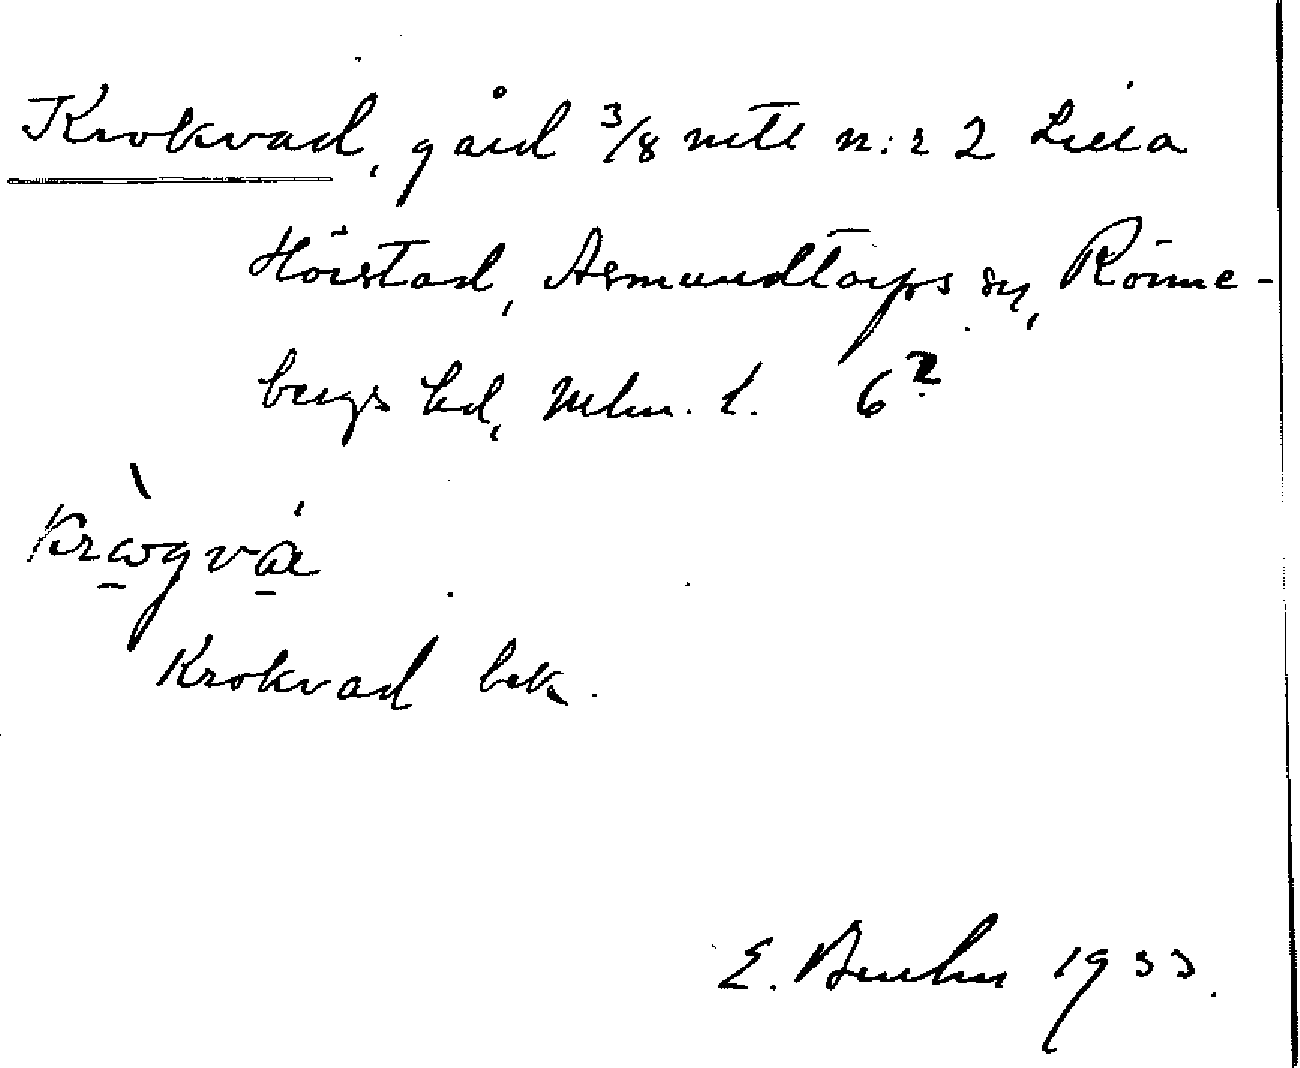 Krokvad, gård 3/8 mtl n:r 2 Lilla
Hörstad, Asmundtorps sn, Rönne-
bergs hd, Mlm. l. 6²
Kràgvá
Krokvad bek.
E. Bruhn 1933.